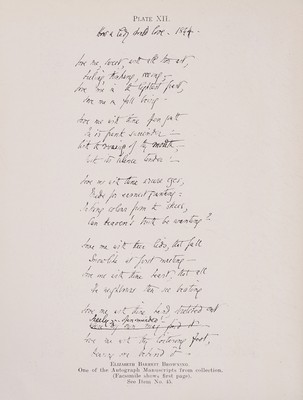 PLATE XII.
Love me, sweet, with all thou art,
Feeling, thinking, seeing,—
Love me in the lightest part,
Love me in full being.
Love me with thine open youth
In its frank surrender –
With the vowing of thy mouth,
With its silence tender –
Love me with thine azure eyes,
Made for earnest granting –
Taking colour from the skies,
Can heaven's truth be wanting?
Love me with their lids, that fall
Snowlike at first meeting –
Love me with thine heart, that all
Love me with thine hand stretched out
Freely – open-minded!
Love me with thy loitering foot,
Hearing one behind it –
ELIZABETH BARRETT BROWNING.
One of the Autograph Manuscripts from collection.
(Facsimile shows first page).
See Item No. 45.